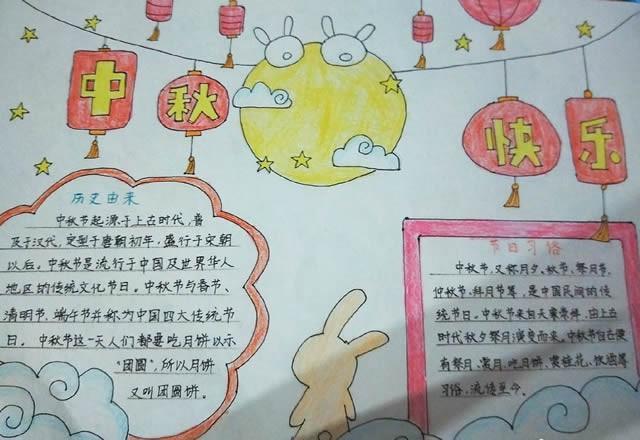 中秋快乐
历史由来
中秋节起源于上古时代，普
及于汉代，定型于唐朝初年，盛行于宋朝
以后。中秋节是流行于中国及世界华人
地区的传统文化节日。中秋节与春节、
清明节、端午节并称为中国四大传统节
日。中秋节这一天人们都要吃月饼以示
“团圆”，所以月饼
又叫团圆饼。
节日习俗
中秋节，又称月夕、秋节、祭月节、
仲秋节、拜月节等，是中国民间的传
统节日。中秋节来自天象崇拜，由上古
时代秋夕祭月演变而来。中秋节自古便
有祭月、赏月、吃月饼、赏桂花、饮酒等
习俗，流传至今。